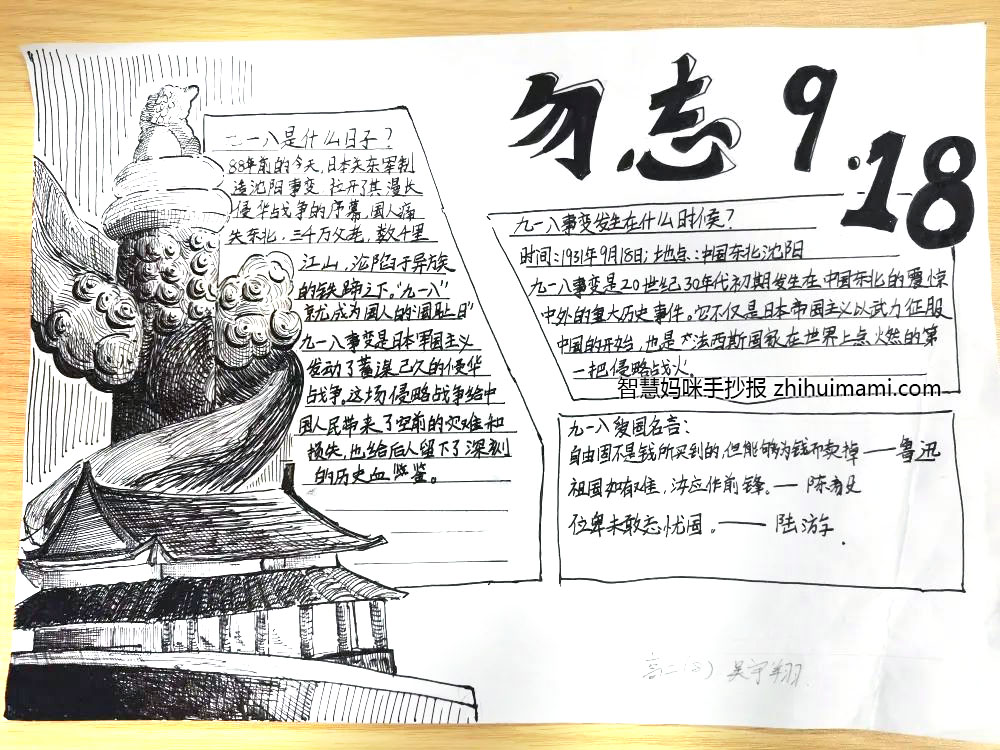 勿忘 9.18
九一八是什么日子？
88年前的今天，日本关东军制
造沈阳事变，拉开了其漫长
侵华战争的序幕，国人痛
失东北，三千万父老，数千里
江山，沦陷于异族
的铁蹄之下。“九一八”
就成为国人的“国耻日”
九一八事变是日本军国主义
发动了蓄谋已久的侵华
战争。这场侵略战争给中
国人民带来了空前的灾难和
损失，也给后人留下了深刻
的历史血鉴。
九一八事变发生在什么时候？
时间：1931年9月18日；地点：中国东北沈阳
九一八事变是20世纪30年代初期发生在中国东北的震惊
中外的重大历史事件。它不仅是日本帝国主义以武力征服
中国的开始，也是法西斯国家在世界上点燃的第
一把侵略战火。
智慧妈咪手抄报 zhihuimami.com
九一八爱国名言：
自由固不是钱所买到的，但能够为钱而卖掉——鲁迅
祖国如有难，汝应作前锋。——陈毅
位卑未敢忘忧国。——陆游
高二 吴宇翔